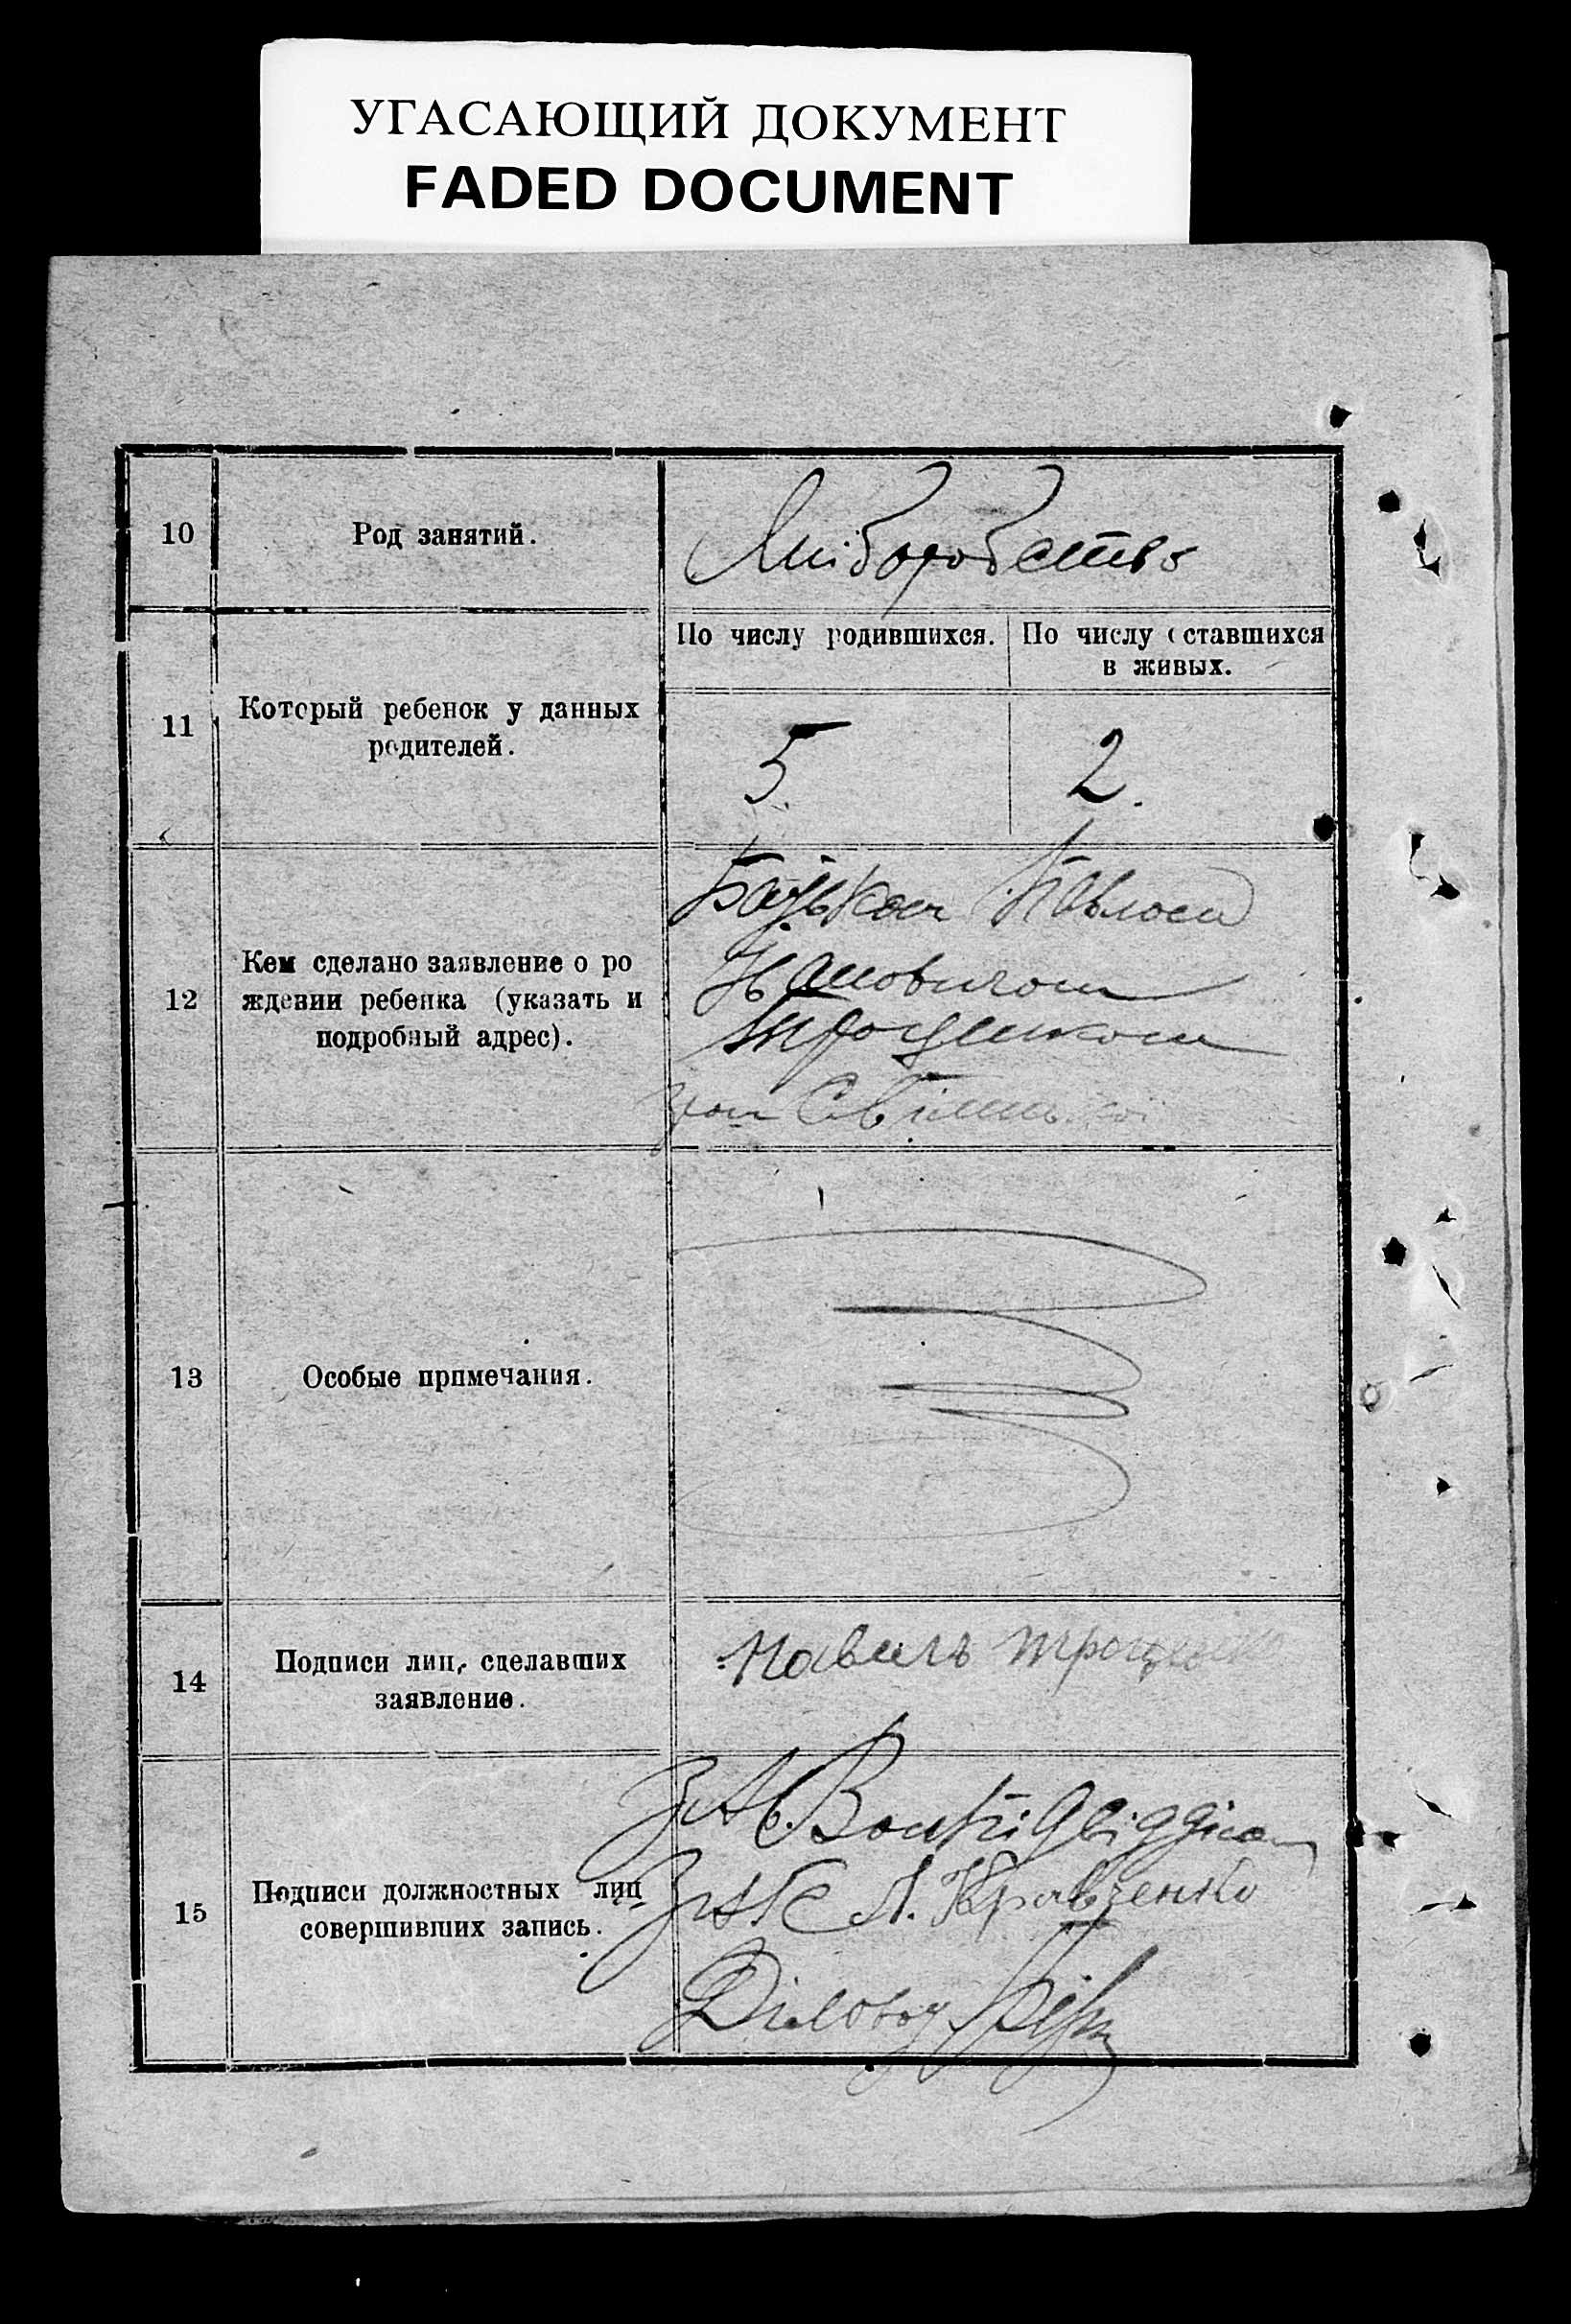 УГАСАЮЩИЙ ДОКУМЕНТ
FADED DOCUMENT
10
Род занятий.
Хліборобство
11
Который ребенок у данных
родителей.
По числу родившихся.
По числу оставшихся
в живых.
5.
2.
12
Кем сделано заявление о ро
ждении ребенка (указать и
подробный адрес).
Батьком Павлом
Троценком
гром
13
Особые примечания.
14
Подписи лиц, сделавших
заявление.
Павелъ Троценко
15
Подписи должностных лиц
совершивших запись.
А. Кравченко
Діловод